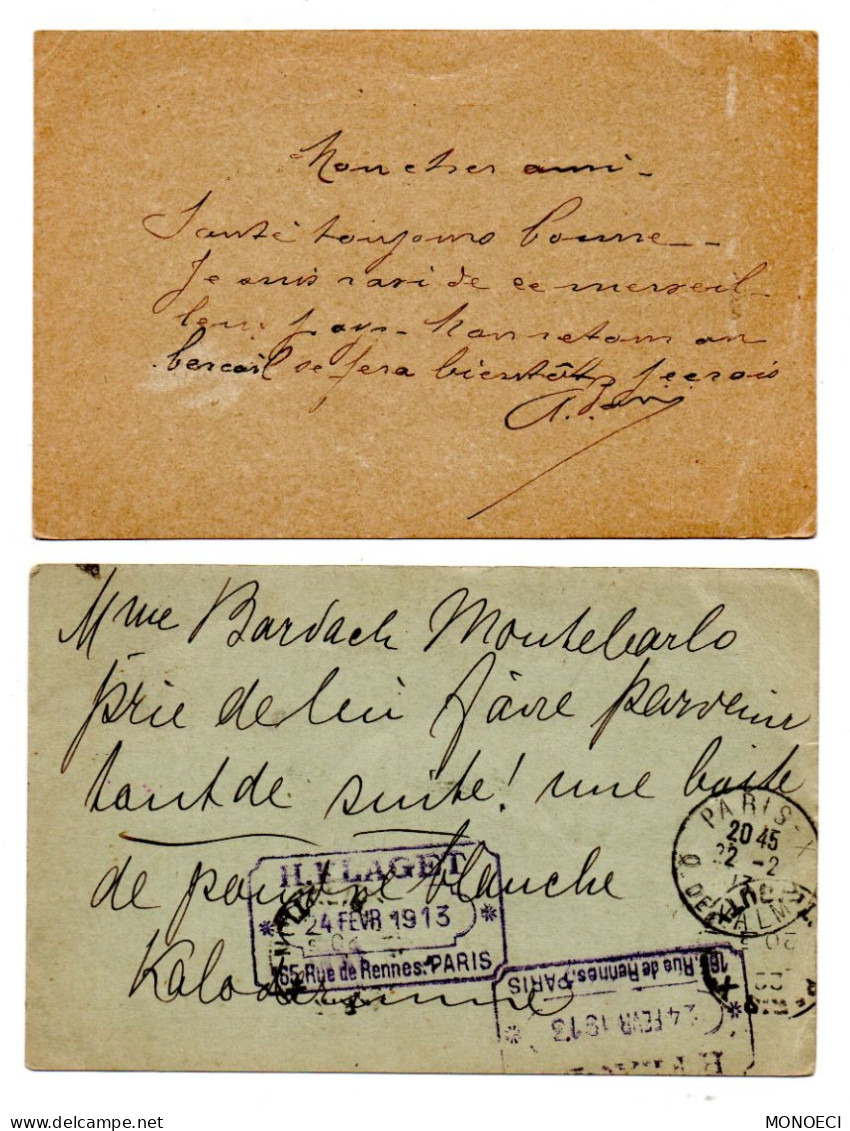 Mon cher ami -
Santé toujours bonne --
Je suis ravi de ce merveil-
leux pays - Mon retour au
bercail se fera bientôt, je crois
Mme Bardach Montecarlo
prie de lui faire parvenir
tout de suite! une boite
de poudre blanche
Kaloderma
H. FLAGET
24 FEVR 1913
165 Rue de Rennes. PARIS
PARIS-X
20 45
22 -2
165, Rue de Rennes, PARIS
24 FEVR 1913
MONOECI